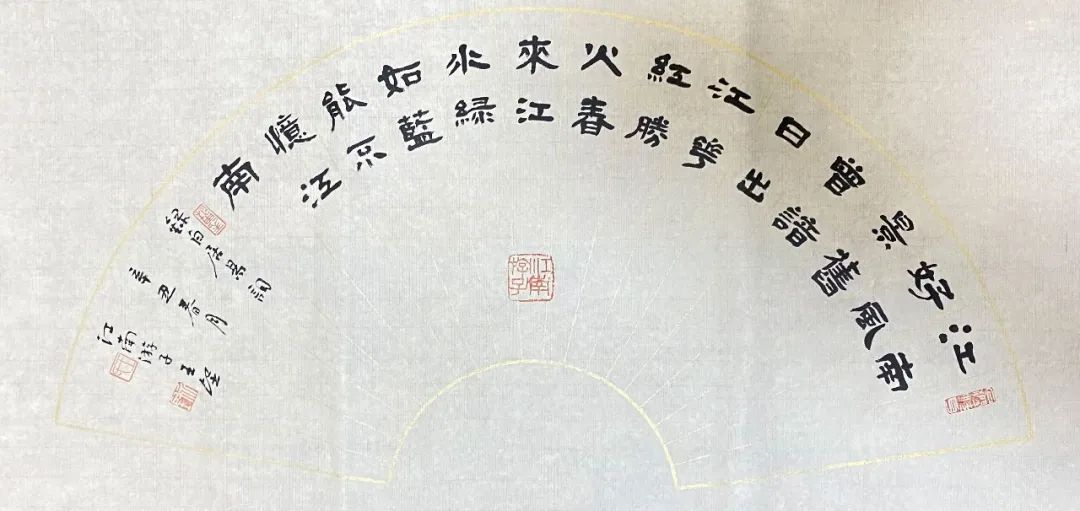 江南
好風
景舊
曾諳
日出
江華
紅勝
火春
來江
水緑
如藍
能不
憶江
南
錄白居易詞
辛丑春月
江南游子王
江南
游子